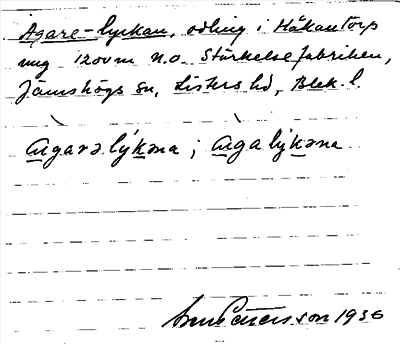 Agare-lyckan, odling i Håkantorp
ung 1200 m n.o. Stärkelsefabriken,
Jämshögs sn, Listers hd, Blek. l.
agarə lýkəna ; aga lýkəna
Pettersson 1936